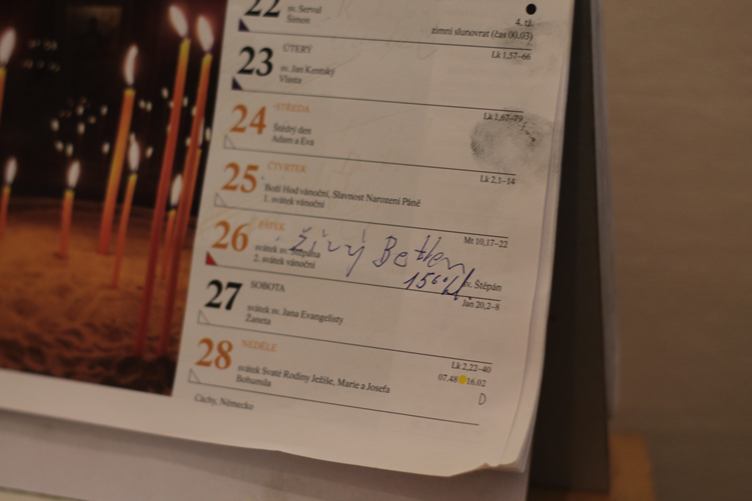 22
sv. Servul
Šimon
4. tý.
zimní slunovrat (čas 00.03)
23
ÚTERÝ
Lk 1,57–66
sv. Jan Kentský
Vlasta
24
STŘEDA
Lk 1,67–79
Štědrý den
Adam a Eva
25
ČTVRTEK
Lk 2,1–14
Boží Hod vánoční, Slavnost Narození Páně
1. svátek vánoční
26
PÁTEK
Mt 10,17–22
svátek sv. Štěpána
2. svátek vánoční
živý Betlem
15
sv. Štěpán
27
SOBOTA
Jan 20,2–8
svátek sv. Jana Evangelisty
Žaneta
28
NEDĚLE
Lk 2,22–40
svátek Svaté Rodiny Ježíše, Marie a Josefa
07.48 16.02
Bohumila
D
Cáchy, Německo